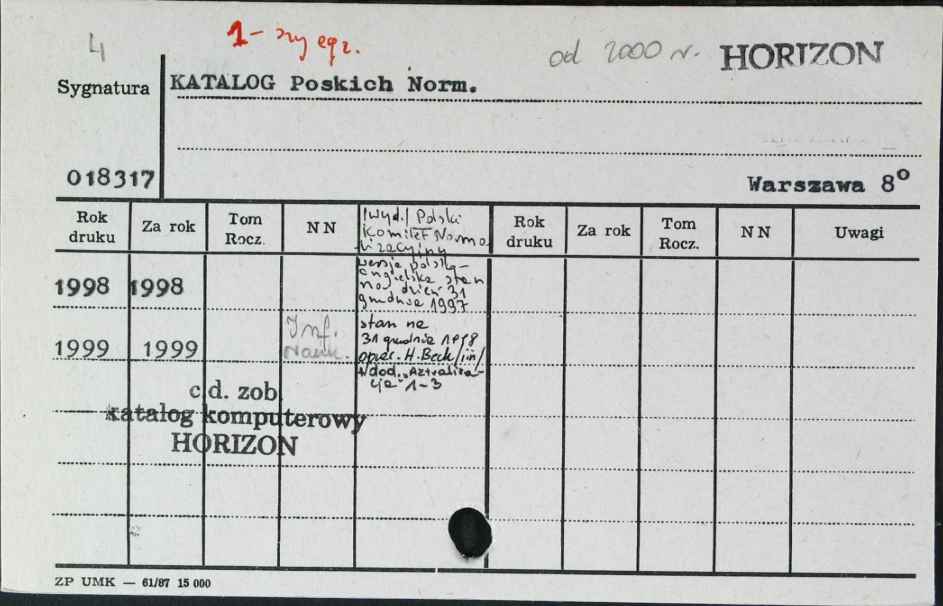 4
1-szy egz.
od 2000 r. HORIZON
Sygnatura
KATALOG Poskich Norm.
018317
Warszawa 8°
Rok druku Za rok Tom Rocz. NN /wyd./ Polski Komitet Normalizacyjny Rok druku Za rok Tom Rocz. NN Uwagi
1998 1998
wersja polsko-
angielska stan
na dzień 31
grudnia 1997
1999 1999 Inf. Nauk.
stan na
31 grudnia 1998
oprac. H. Beck /in/
+/dod. "Aktualiza-
cja" 1-3
c.d. zob
katalog komputerowy
HORIZON
ZP UMK — 61/87 15 000